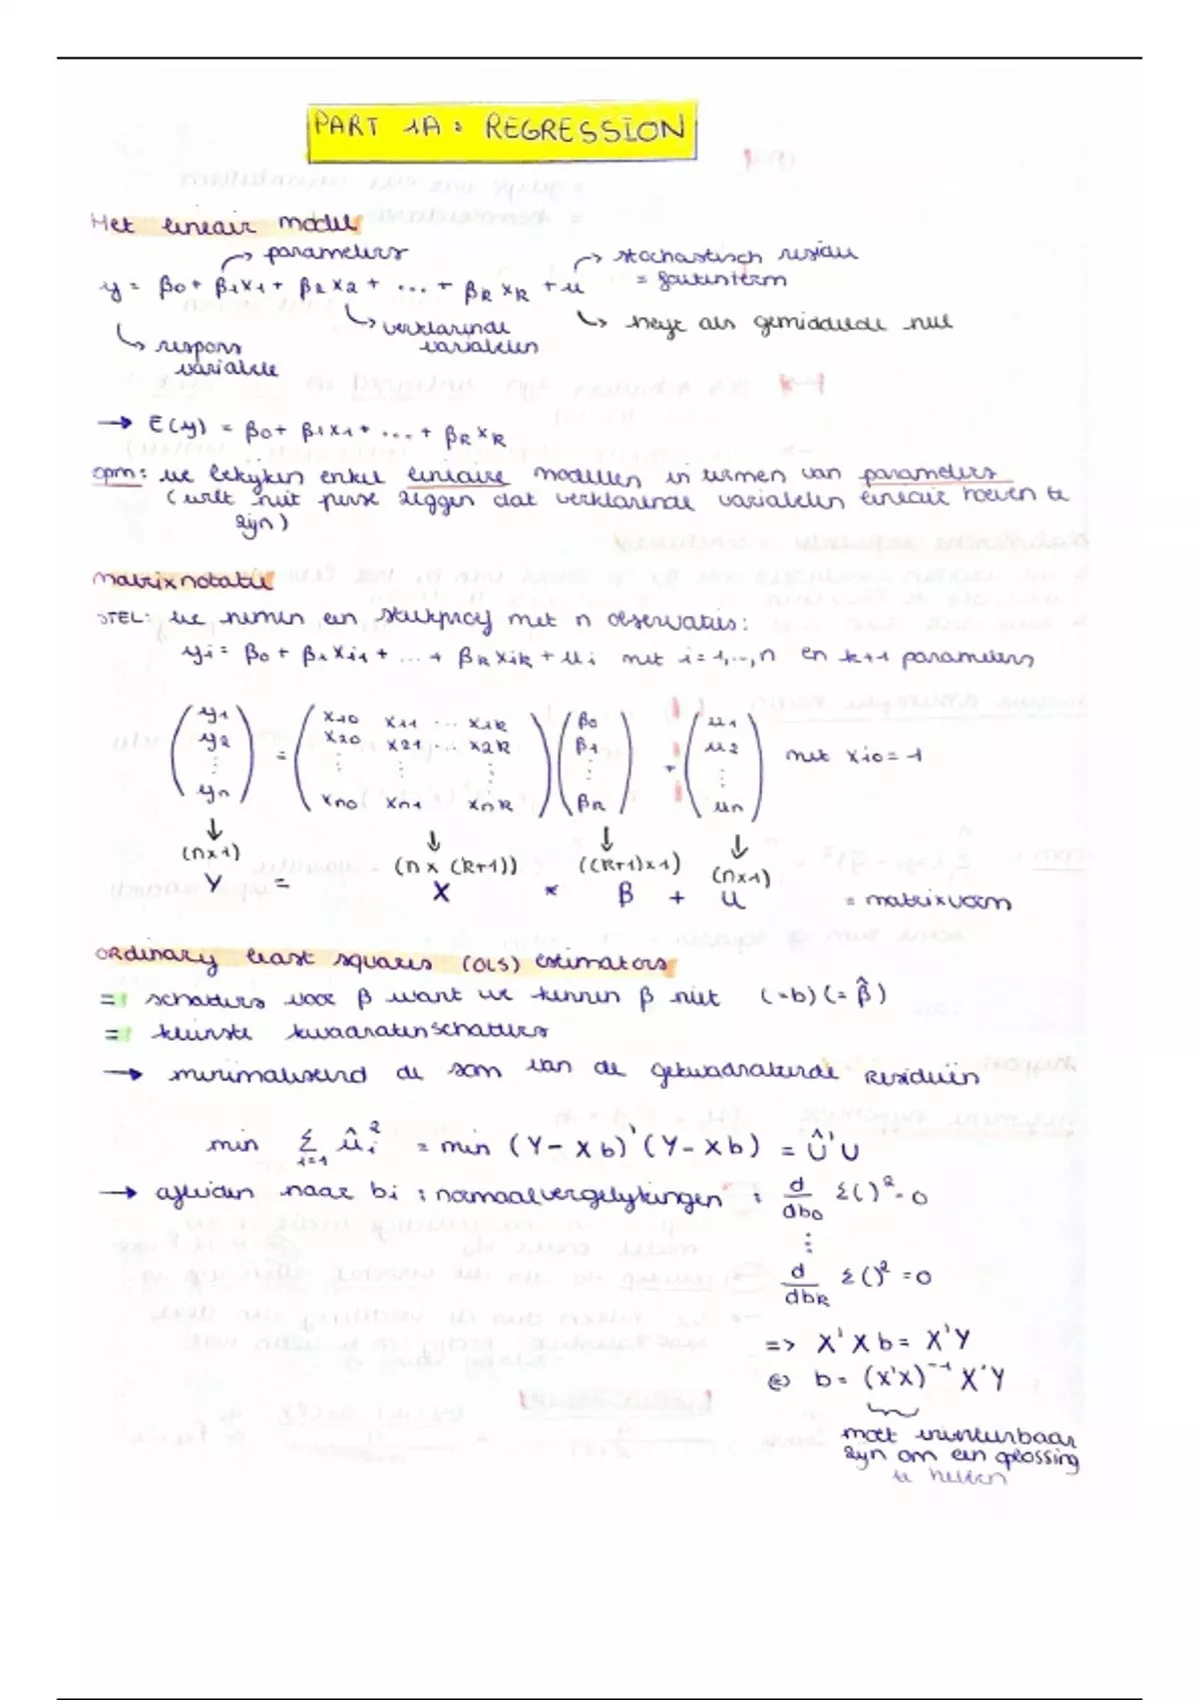 PART 1A : REGRESSION
Het lineair model
parameters
stochastisch residu
= foutenterm
y = β0 + β1x1 + β2x2 + ... + βkxk + u
verklarende
variabelen
heeft als gemiddelde nul
respons
variabele
→ E(y) = β0 + β1x1 + ... + βkxk
opm: we bekijken enkel lineaire modellen in termen van parameters
(wilt niet perse zeggen dat verklarende variabelen lineair hoeven te
zijn)
Matrixnotatie
STEL: we nemen een steekproef met n observaties:
yi = β0 + β1xi1 + ... + βkxik + ui met i=1,...,n en k+1 parameters
(y1 y2 ⋮ yn) = (x10 x11 ... x1k x20 x21 ... x2k ⋮ ⋮ ⋮ xn0 xn1 xnk) (β0 β1 ⋮ βk) + (u1 u2 ⋮ un) met xi0 = 1
↓ ↓ ↓ ↓
(n×1) (n × (k+1)) ((k+1)×1) (n×1)
Y = X * β + U = matrixvorm
Ordinary least squares (OLS) estimators
= schatters voor β want we kennen β niet (=b) (=β̂)
= kleinste kwadratenschatters
→ minimaliserend de som van de gekwadrateerde residuën
min Σ i=1 ûi² = min (Y - Xb)' (Y - Xb) = Û'U
→ afleiden naar bi : normaalvergelijkingen : d/db0 Σ( )² = 0
⋮
d/dbk Σ( )² = 0
=> X'Xb = X'Y
⇔ b = (X'X)⁻¹ X'Y
moet inverteerbaar
zijn om een oplossing
te hebben